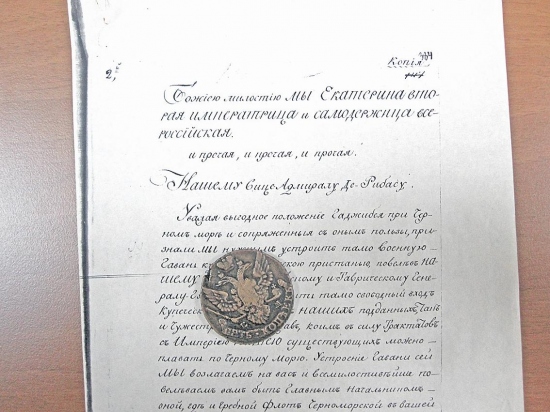 2,
Копія
Божіею милостію МЫ Екатерина вто
рая императрица и самодержица все
россійская.
и протчая, и протчая, и протчая.
Нашему Вице Адмиралу Де-Рибасу.
Уважая выгодное положеніе Гаджибея при Чер
номъ море и сопряженныя съ онымъ пользы, приз
нали мы нужнымъ устроить тамо военную
Гавань купеческою пристанью, повелевъ На
шему и Таврическому Гене
ралу тамо свободный входъ
Купеческ НАШИХЪ подданныхъ, такъ
и чужестр коимъ въ силу Трактатовъ
съ Имперіею существующихъ можно
плавать по Черному Морю. Устроеніе Гавани сей
МЫ возлагаемъ на васъ и всемилостивейше по
велеваемъ вамъ быть Главнымъ Начальникомъ
оной, где и гребной Флотъ Черноморской въ вашей
ПЯТЬ КОПѢЕКЪ